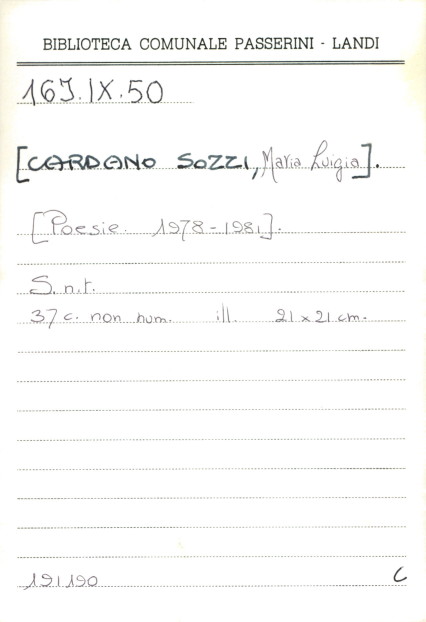 BIBLIOTECA COMUNALE PASSERINI - LANDI
16J.IX.50
[CARDANO SOZZI, Maria Luigia].
[Poesie. 1978-1981].
S.n.t.
37 c. non num. ill. 21 x 21 cm.
191190 C